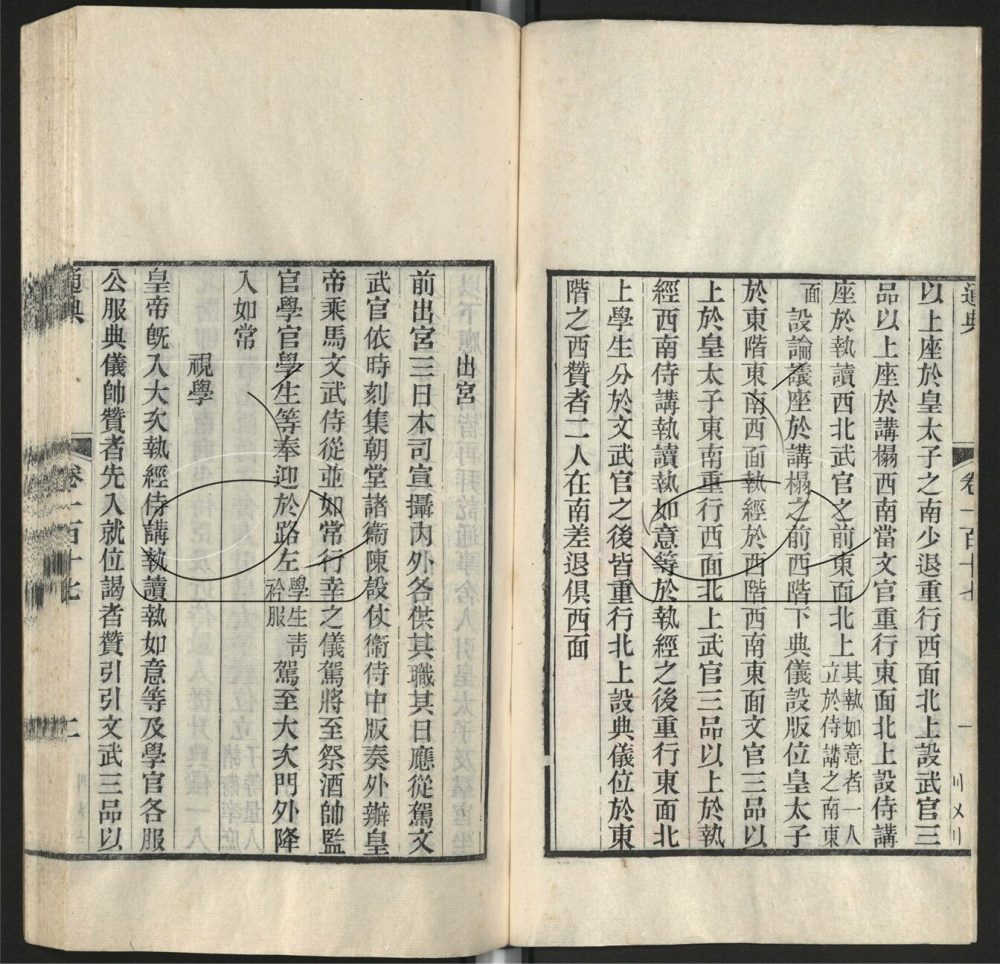 通典
卷一百十七
一
以上座於皇太子之南少退重行西面北上設武官三
品以上座於講榻西南當文官重行東面北上設侍講
座於執讀西北武官之前東面北上其執如意者一人立於侍講之南東
面設論議座於講榻之前西階下典儀設版位皇太子
於東階東南西面執經於西階西南東面文官三品以
上於皇太子東南重行西面北上武官三品以上於執
經西南侍講執讀執如意等於執經之後重行東面北
上學生分於文武官之後皆重行北上設典儀位於東
階之西贊者二人在南差退俱西面
出宮
前出宮三日本司宣攝內外各供其職其日應從駕文
武官依時刻集朝堂諸衞陳設仗衞侍中版奏外辦皇
帝乘馬文武侍從並如常行幸之儀駕將至祭酒帥監
官學官學生等奉迎於路左學生青衿服駕至大次門外降
入如常
視學
皇帝旣入大次執經侍講執讀執如意等及學官各服
公服典儀帥贊者先入就位謁者贊引引文武三品以
通典
卷一百十七
二